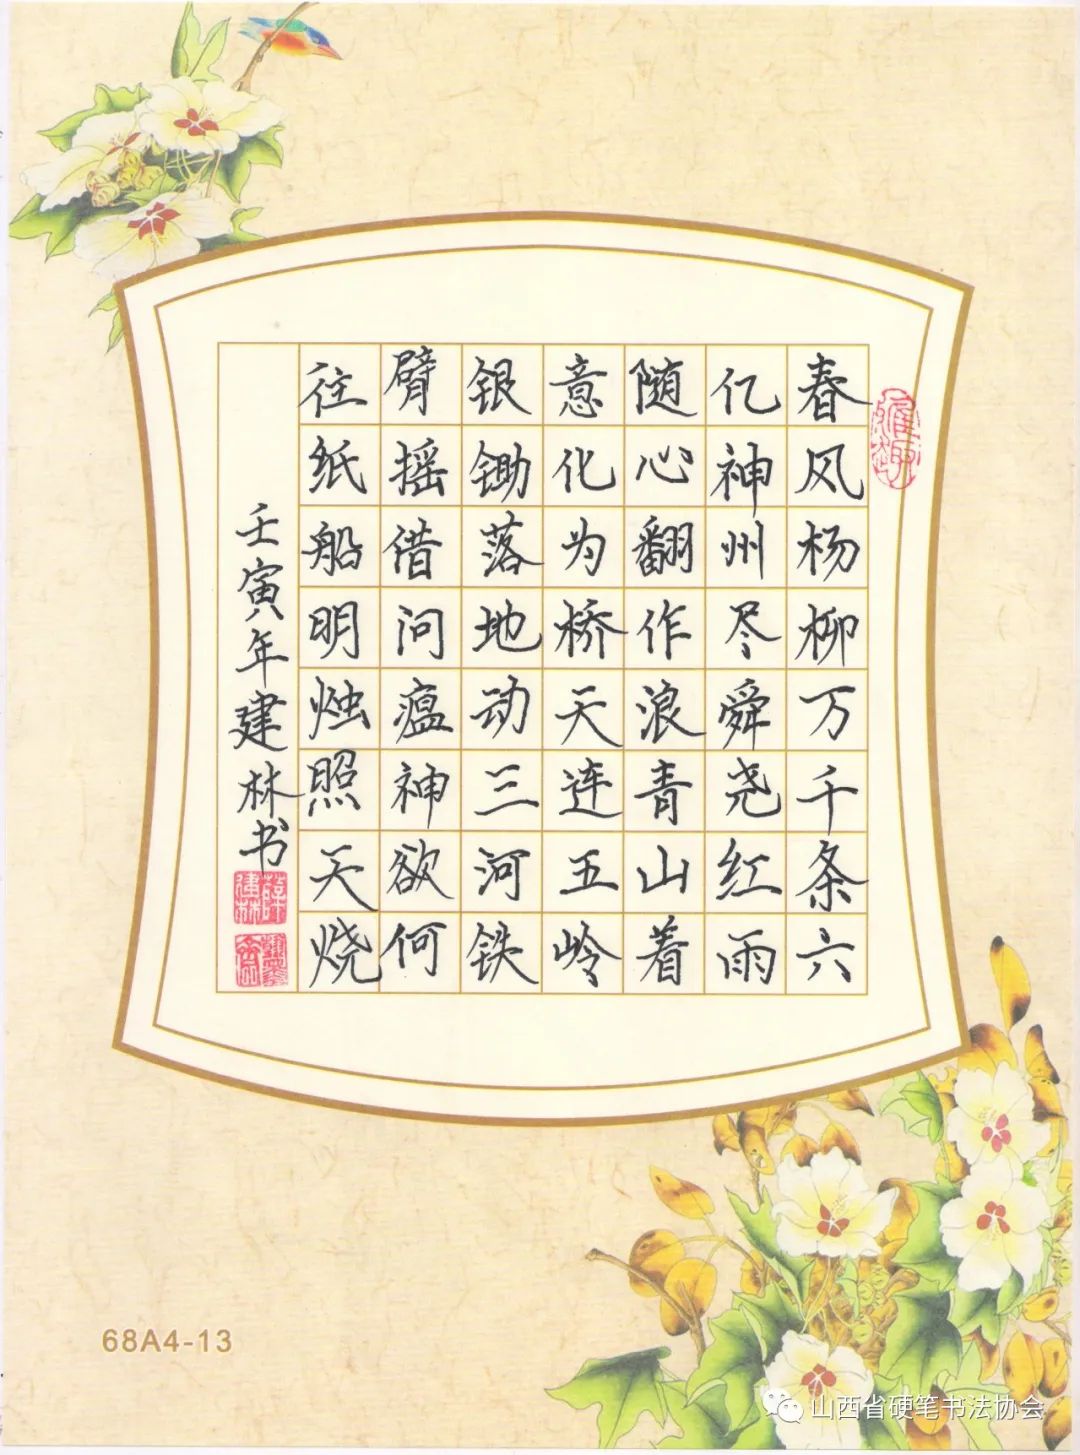 春风杨柳万千条六
亿神州尽舜尧红雨
随心翻作浪青山着
意化为桥天连五岭
银锄落地动三河铁
臂摇借问瘟神欲何
往纸船明烛照天烧
壬寅年建林书
雅趣
薛建林
68A4-13
山西省硬笔书法协会